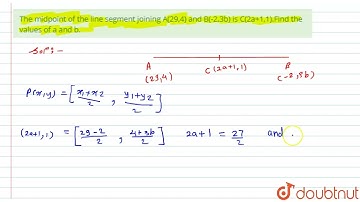 The midpoint of the line segment joining A(29,4) and B(-2,3b) is C(2a+1,1).Find the
values of a and b.
Solⁿ:-
A B
C (2a+1,1)
(29,4) (-2,3b)
P(x,y) = [x₁+x₂/2 , y₁+y₂/2]
(2a+1,1) = [29-2/2 , 4+3b/2] 2a+1 = 27/2 and .
doubtnut